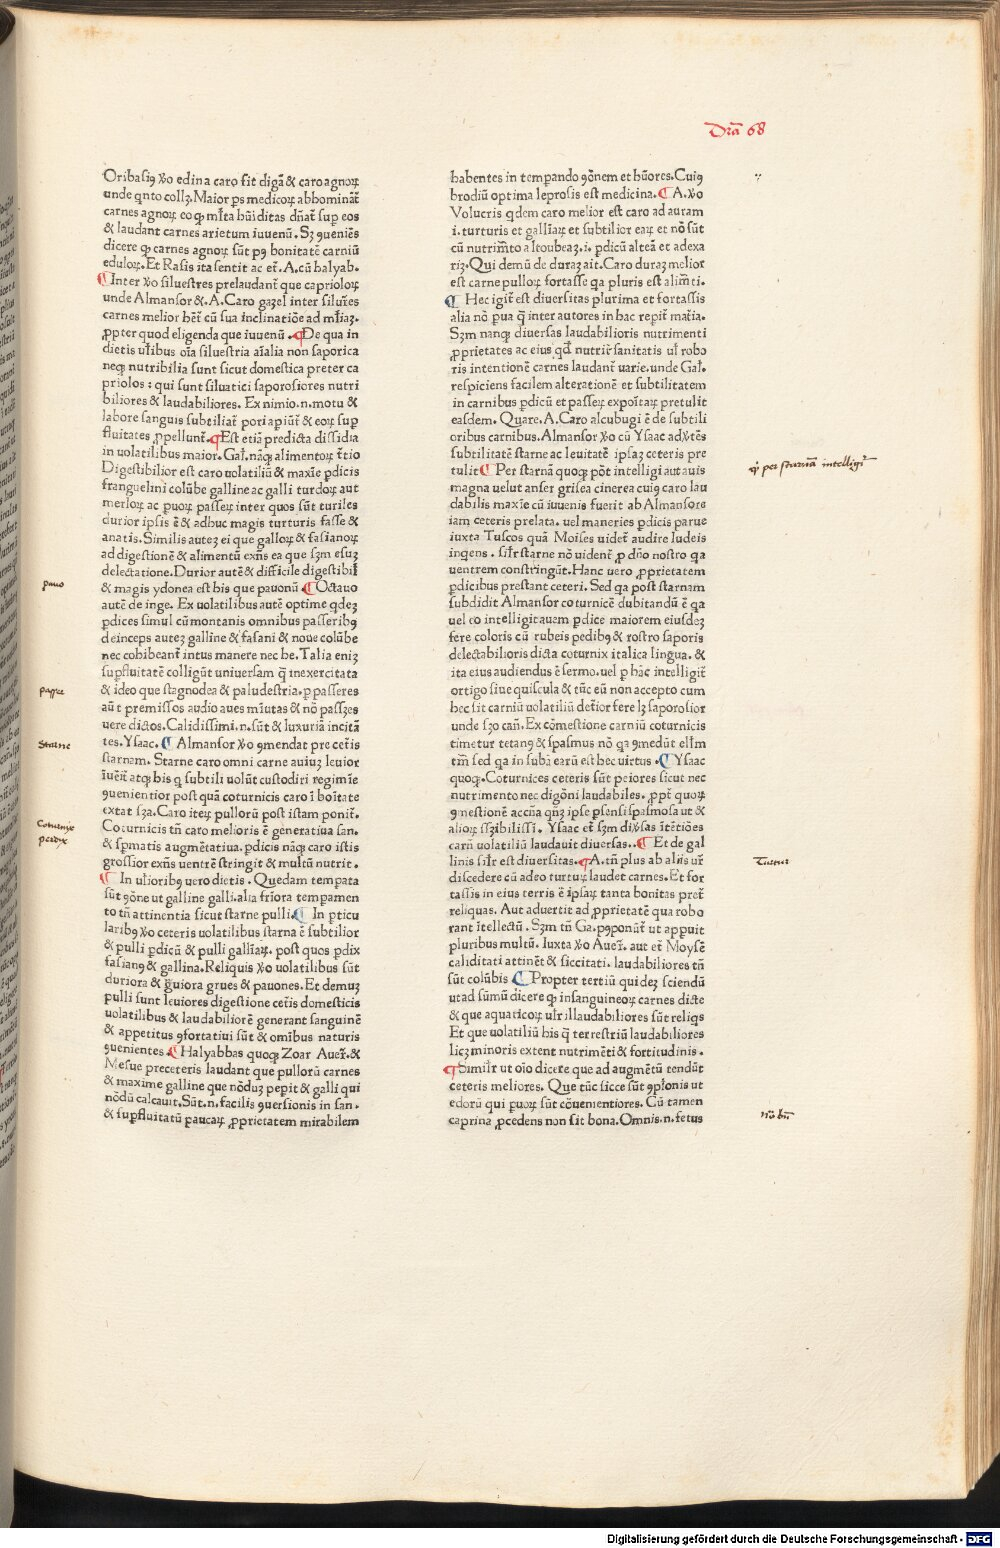 Dr̄a 68
Oribasiꝰ ꝟo edina caro sit digā & caro agnoꝝ
unde qnto collꝫ. Maior ps medicoꝝ abbominat̄
carnes agnoꝝ eo ꝙ ml̄ta hūiditas dn̄at̄ sup eos
& laudant carnes arietum iuuenū. Sꝫ ꝯueniēs
dicere ꝙ carnes agnoꝝ sūt pꝰ bonitatē carniū
eduloꝝ. Et Rasis ita sentit ac et̄. A. cū halyab.
¶ Inter ꝟo siluestres prelaudant̄ que caprioloꝝ
unde Almansor &. A. Caro gazel inter silūr̄es
carnes melior het̄ cū sua inclinatiōe ad ml̄iaꝫ.
ꝓpter quod eligenda que iuuenū. ¶ De qua in
dietis ul̄ibus oīa siluestria aīalia non saporica
neqꝫ nutribilia sunt sicut domestica preter ca
priolos : qui sunt siluatici saporosiores nutri
biliores & laudabiliores. Ex nimio. n. motu &
labore sanguis subtiliat̄ pori apiūt̄ & eoꝝ sup
fluitates ꝓpellunt̄. ¶ Est etiā predicta dissidia
in uolatilibus maior. Gal̄. nāqꝫ alimentoꝝ t̄tio
Digestibilior est caro uolatiliū & maxīe pdicis
franguelini colūbe galline ac galli turdoꝝ aut
merloꝝ ac puoꝝ passeꝝ inter quos sūt turiles
durior ipsis ē & adhuc magis turturis fasse &
anatis. Similis autez ei que galloꝝ & fasianoꝝ
ad digestionē & alimentū exn̄s ea que sꝫm esuꝫ
delectatione. Durior autē & difficile digestibil̄
& magis ydonea est his que pauonū ¶ Octauo
autē de inge. Ex uolatilibus autē optime qdeꝫ
pdices simul cū montanis omnibus passeribꝰ
deinceps auteꝫ galline & fasani & noue colūbe
nec cohibeant̄ intus manere nec he. Talia eniꝫ
supfluitatē colligūt uniuersam q̄ inexercitata
& ideo que stagnodea & paludestria. p passeres
aūt premissos audio aues mīutas & nō passꝫes
uere dictos. Calidissimi. n. sūt & luxuriā incitā
tes. Ysaac. ¶ Almansor ꝟo ꝯmendat pre cet̄is
starnam. Starne caro omni carne auiuꝫ leuior
īuēit̄ atqꝫ his q subtili uolūt custodiri regimīe
ꝯuenientior post quā coturnicis caro ī boītate
extat sꝫa. Caro iteꝝ pullorū post istam ponit̄.
Coturnicis tn̄ caro melioris ē generatiua san.
& spmatis augmētatiua. pdicis nāqꝫ caro istis
grossior exn̄s uentrē stringit & multū nutrit.
¶ In ul̄ioribꝰ uero dietis. Quedam tempata
sūt ꝯōne ut galline galli. alia fr̄iora tempamen
to tn̄ attinentia sicut starne pulli. ¶ In pticu
laribꝰ ꝟo ceteris uolatilibus starna ē subtilior
& pulli pdicū & pulli gallīaꝝ. post quos pdix
fasianꝰ & gallina. Reliquis ꝟo uolatilibus sūt
duriora & guiora grues & pauones. Et demuꝫ
pulli sunt leuiores digestione cet̄is domesticis
uolatilibus & laudabiliorē generant sanguinē
& appetitus ꝯfortatiui sūt & omībus naturis
ꝯuenientes. ¶ Halyabbas quoqꝫ Zoar Auer̄. &
Mesue preceteris laudant que pullorū carnes
& maxime galline que nōduꝫ pepit & galli qui
nōdū calcauit. Sūt. n. facilis ꝯuersionis in san.
& supfluitatū paucaꝝ ꝓprietatem mirabilem
pauo
passeres
Starne
Coturnix
perdyx
habentes in tempando ꝯōnem et hūores. Cuiꝰ
brodiū optima leprosis est medicina. ¶ A. ꝟo
Volucris qdem caro melior est caro ad auram
i. turturis et gallīaꝝ et subtilior eaꝝ et nō sūt
cū nutrimt̄o altoubeaꝫ. i. pdicū alteā et adexa
riꝫ. Qui demū de duraꝫ ait. Caro duraꝫ melior
est carne pulloꝝ fortasse qa pluris est alimt̄i.
¶ Hec igit̄ est diuersitas plurima et fortassis
alia nō pua q̄ inter autores in hac repit̄ mat̄ia.
Sꝫm nanqꝫ diuersas laudabilioris nutrimenti
ꝓprietates ac eius qd̄ nutrir̄ sanitatis ul̄ robo
ris intentionē carnes laudant̄ uarie. unde Gal̄.
respiciens facilem alterationē et subtilitatem
in carnibus pdicū et passeꝝ expoītaꝝ pretulit
easdem. Quare. A. Caro alcubugi ē de subtili
oribus carnibus. Almansor ꝟo cū Ysaac adꝟtēs
subtilitatē starne ac leuitatē ipsaꝫ ceteris pre
tulit ¶ Per starnā quoqꝫ pōt intelligi aut auis
magna uelut anser grisea cinerea cuiꝰ caro lau
dabilis maxīe cū iuuenis fuerit ab Almansore
iam ceteris prelata. uel maneries pdicis parue
iuxta Tuscos quā Moises uidet̄ audire ludeis
ingens. sil̄r starne nō uident̄ ꝓ dn̄o nostro qa
uentrem constringūt. Hanc uero ꝓprietatem
pdicibus prestant ceteri. Sed qa post starnam
subdidit Almansor coturnicē dubitandū ē qa
uel eo intelligit auem pdice maiorem eiusdeꝫ
fere coloris cū rubeis pedibꝰ & rostro saporis
delectabilioris dicta coturnix italica lingua. &
ita eius audiendus ē sermo. uel p hāc intelligit̄
ortigo siue quiscula & tūc eū non accepto cum
hec sit carniū uolatiliū det̄ior fere lꝫ saporosior
unde sꝫo can̄. Ex cōmestione carniū coturnicis
timetur tetanꝰ & spasmus nō qa ꝯmedūt ell̄m
tm̄ sed qa in subā earū est hec uirtus. ¶ Ysaac
quoqꝫ. Coturnices ceteris sūt peiores sicut nec
nutrimento nec digōni laudabiles. ꝓpt̄ quoꝝ
ꝯmestionē accn̄a qn̄ꝫ ipse psensi spasmosa ut &
alioꝝ sꝫibilissi. Ysaac et̄ sꝫm diꝟsas ītētiōes
carn̄ uolatiliū laudauit diuersas.. ¶ Et de gal
linis sil̄r est diuersitas. ¶ A. tn̄ plus ab aliis ur̄
discedere cū adeo turtuꝝ laudet carnes. Et for
tassis in eius terris ē ipsaꝝ tanta bonitas pret̄
reliquas. Aut aduertit ad ꝓprietatē qua robo
rant ītellectū. Sꝫm tn̄ Ga. pponūt̄ ut appuit
pluribus multū. Iuxta ꝟo Auer̄. aut et̄ Moysē
caliditati attinēt & siccitati. laudabiliores tn̄
sūt colūbis ¶ Propter tertiū quideꝫ sciendū
ut ad sūmū dicere ꝙ insanguineoꝝ carnes dicte
& que aquaticoꝝ ul̄r illaudabiliores sūt reliqs
Et que uolatiliū his q̄ terrestriū laudabiliores
licꝫ minoris extent nutrimēti & fortitudinis.
¶ Simil̄r ut oīo dicere que ad augmētū tendūt
ceteris meliores. Que tūc sicce sūt ꝯplōnis ut
edorū qui puoꝝ sūt cōuenientiores. Cū tamen
caprina ꝓcedens non sit bona. Omnis. n. fetus
ꝙ per starnam intelligit̄
Turtur